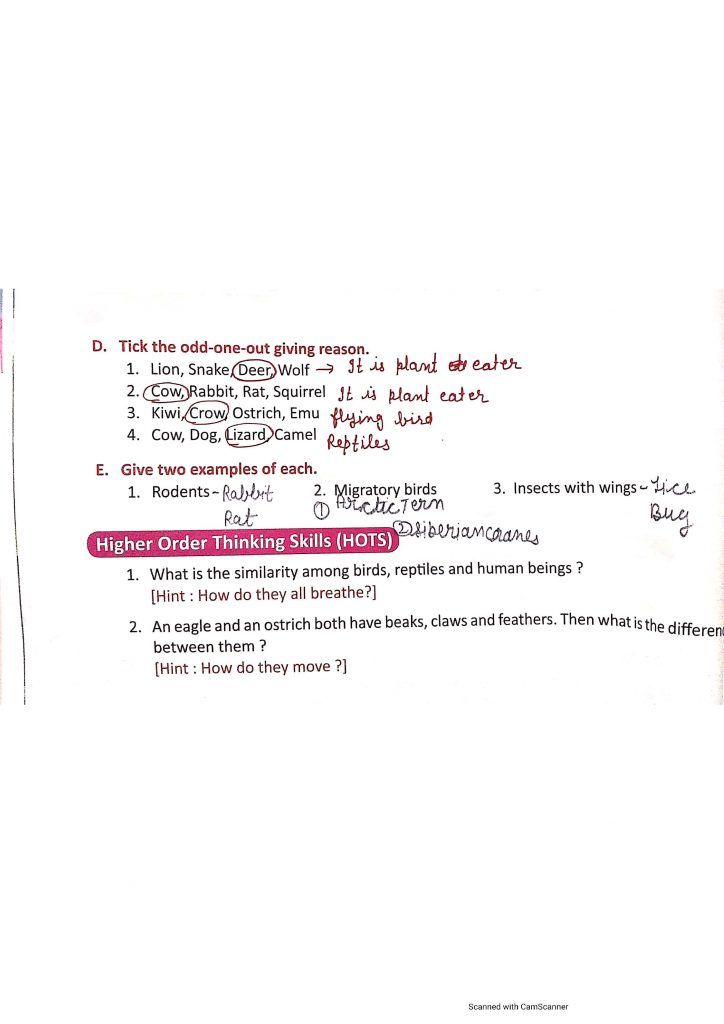 D. Tick the odd-one-out giving reason.
1. Lion, Snake, Deer, Wolf → It is plant eater
2. Cow, Rabbit, Rat, Squirrel It is plant eater
3. Kiwi, Crow, Ostrich, Emu flying bird
4. Cow, Dog, Lizard, Camel Reptiles
E. Give two examples of each.
1. Rodents - Rabbit 2. Migratory birds 3. Insects with wings - Lice
Rat ① Arctic Tern Bug
② Siberian cranes
Higher Order Thinking Skills (HOTS)
1. What is the similarity among birds, reptiles and human beings ?
[Hint : How do they all breathe?]
2. An eagle and an ostrich both have beaks, claws and feathers. Then what is the differen
between them ?
[Hint : How do they move ?]
Scanned with CamScanner